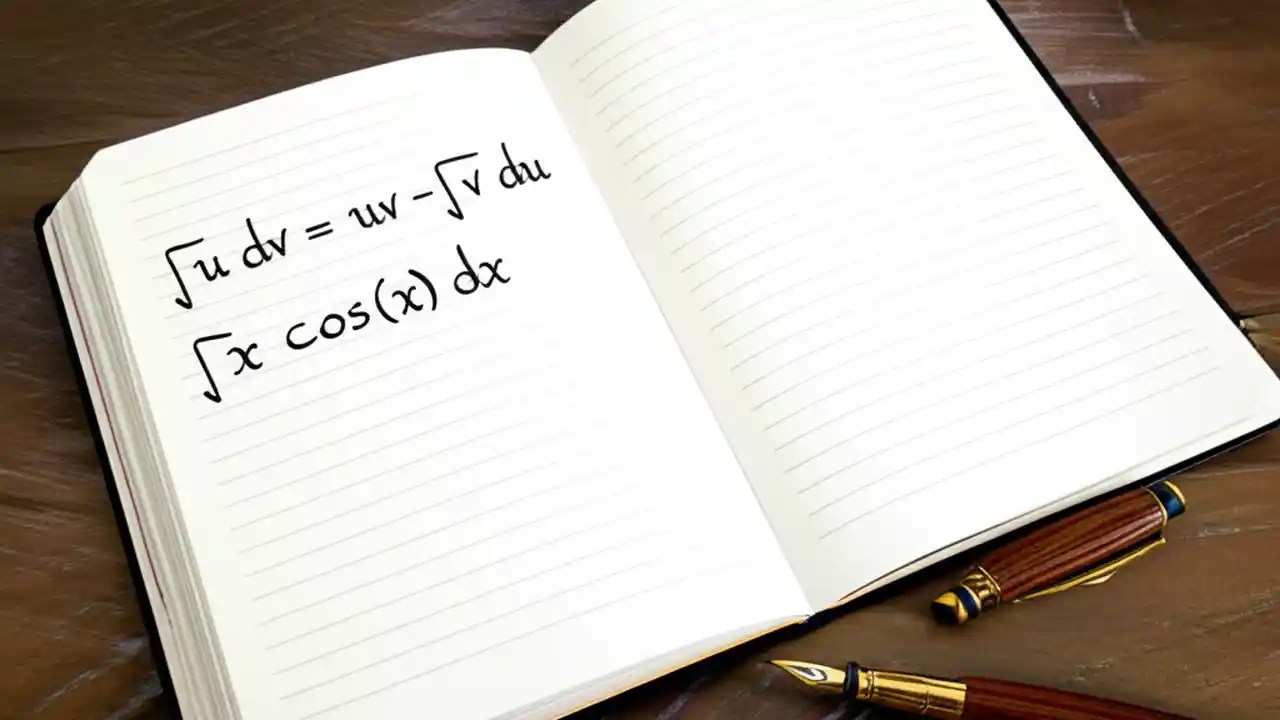 √u dv = uv - √v du
√x cos(x) dx